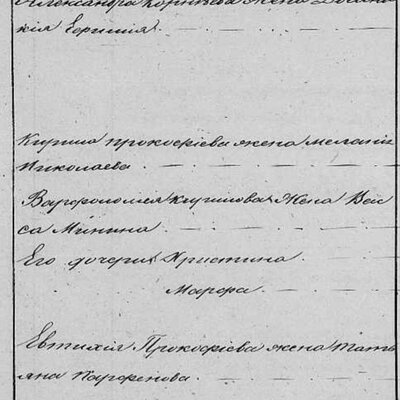 Александра Корнѣева жена
кія Ермиія.
Кирила прокофіева жена меланія
Николаева
Варфоломея кирилова жена Ве
са Минина
Его дочери Христина
Марфа
Евтихія Прокофіева жена Тать
яна Парфенова